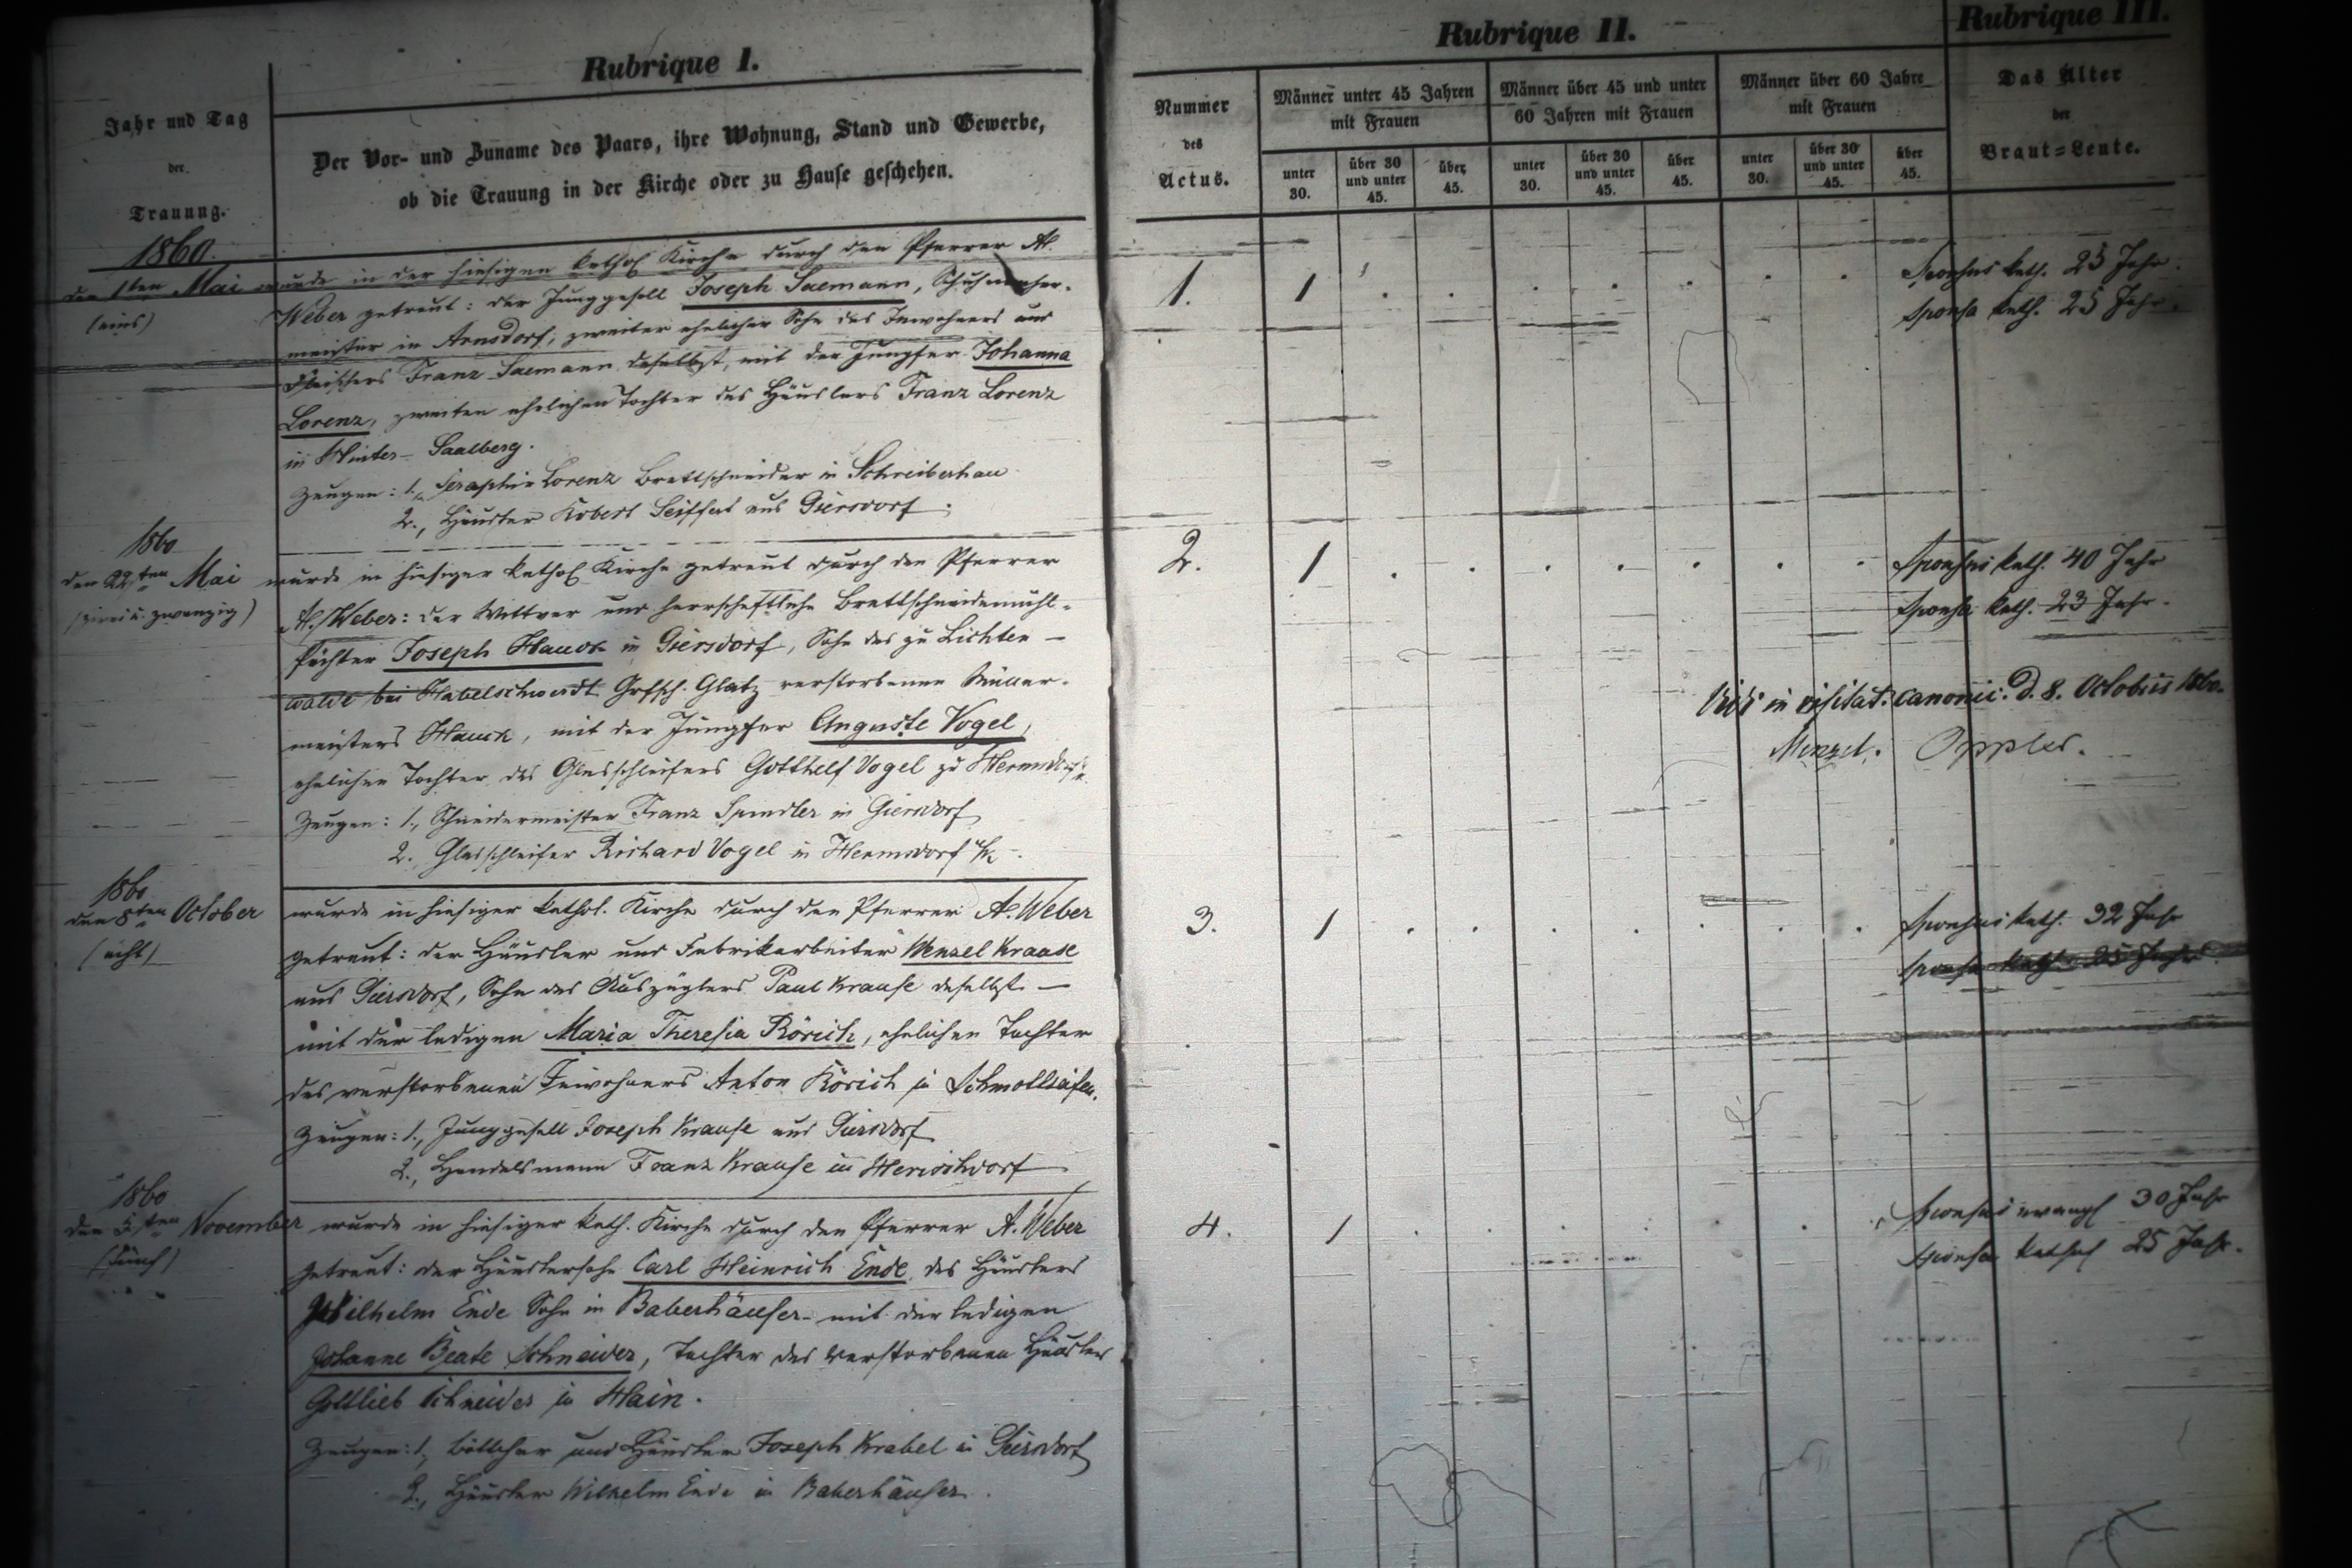 Rubrique I.
Jahr und Tag
der
Trauung.
Der Vor- und Zuname des Paars, ihre Wohnung, Stand und Gewerbe,
ob die Trauung in der Kirche oder zu Hause geschehen.
Rubrique II.
Nummer
des
Actus.
Männer unter 45 Jahren
mit Frauen
Männer über 45 und unter
60 Jahren mit Frauen
Männer über 60 Jahre
mit Frauen
unter
30.
über 30
und unter
45.
über
45.
unter
30.
über 30
und unter
45.
über
45.
unter
30.
über 30
und unter
45.
über
45.
Rubrique III.
Das Alter
der
Braut-Leute.
1860.
den 1ten Mai
(eins)
wurde in der hiesigen kathol Kirche durch den Pfarrer A.
Weber getraut: der Junggesell Joseph Saemann, Schuhmacher-
meister in Arnsdorf, zweiter ehelicher Sohn des Inwohners und
Franz Saemann daselbst, mit der Jungfer Johanna
Lorenz, zweiten ehelichen Tochter des Häuslers Franz Lorenz
in Hinter-Saalberg.
Zeugen: 1., Seraphin Lorenz Brettschneider in Schreiberhau
2., Häusler Robert Seiffert aus Giersdorf.
1. 1
Sponsus kath. 25 Jahr.
Sponsa kath. 25 Jahr.
1860
den 22ten Mai
(zwei u. zwanzig)
wurde in hiesiger kathol Kirche getraut durch den Pfarrer
A. Weber: der Wittwer und herrschaftliche Brettschneidemühl-
pächter Joseph Hauck in Giersdorf, Sohn des zu Lichten-
walde bei Habelschwerdt Grfsch. Glatz verstorbenen Müller-
meisters Hauck, mit der Jungfer Auguste Vogel,
ehelichen Tochter des Glasschleifers Gotthelf Vogel zu Hermsdorf
Zeugen: 1., Schneidermeister Franz Spindler in Giersdorf
2., Glasschleifer Richard Vogel in Hermsdorf u/K.
2. 1
Sponsus kath. 40 Jahr
Sponsa kath. 23 Jahr.
Vidi in visitat. canonic. d. 8. Octobris 1860.
Menzel. Oppler.
1860
den 8ten October
(acht)
wurde in hiesiger kathol. Kirche durch den Pfarrer A. Weber
getraut: der Häusler und Fabrikarbeiter Wenzel Krause
aus Giersdorf, Sohn des Auszüglers Paul Krause daselbst -
mit der ledigen Maria Theresia Rörich, ehelichen Tochter
des verstorbenen Inwohners Anton Rörich in Schmottseifen.
Zeugen: 1., Junggesell Joseph Krause aus Giersdorf
2., Handelsmann Franz Krause in Herischdorf
3. 1
Sponsus kath. 32 Jahr
Sponsa kath. 25 Jahr.
1860
den 5ten November
(fünf)
wurde in hiesiger kath. Kirche durch den Pfarrer A. Weber
getraut: der Häuslersohn Carl Heinrich Ende, des Häuslers
Wilhelm Ende Sohn in Baberhäuser - mit der ledigen
Johanne Beate Schneider, Tochter des verstorbenen Häusler
Gottlieb Schneider in Hain.
Zeugen: 1., Böttcher und Häusler Joseph Krabel in Giersdorf
2., Häusler Wilhelm Ende in Baberhäuser.
4. 1
Sponsus evangl 30 Jahr
Sponsa kathol 25 Jahr.